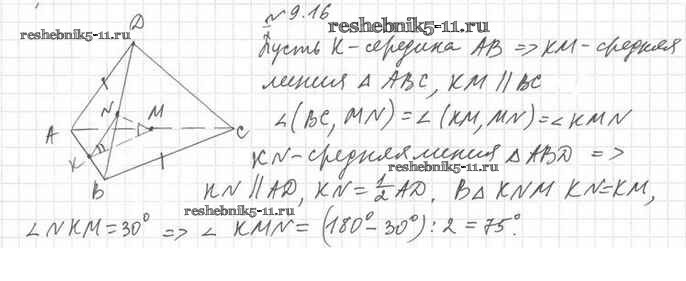 № 9.16
reshebnik5-11.ru
reshebnik5-11.ru
Пусть K - середина AB => KM - средняя
линия △ ABC, KM || BC
∠(BC, MN) = ∠(KM, MN) = ∠KMN
KN - средняя линия △ ABD =>
reshebnik5-11.ru
KN || AD, KN = 1/2 AD. В △ KNM KN = KM,
reshebnik5-11.ru
∠NKM = 30° => ∠ KMN = (180° - 30°) : 2 = 75°.
D
N
M
A
C
K
B